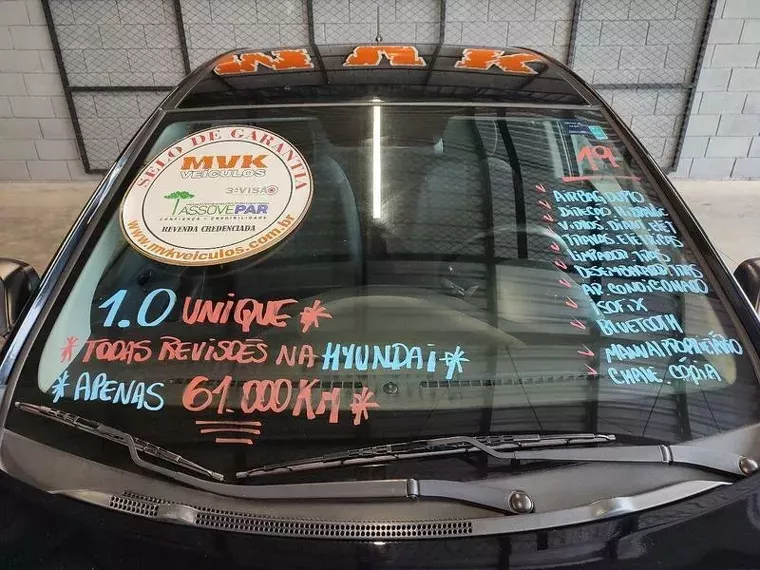 MVK
SELO DE GARANTIA
MVK
VEÍCULOS
3ª VISÃO
ASSOVEPAR
CONFIANÇA • CREDIBILIDADE
REVENDA CREDENCIADA
www.mvkveiculos.com.br
19
AIRBAG DUPLO
DIREÇÃO
VIDROS DIANT
TRAVAS ELÉTRICAS
LIMPADOR TRAS
DESEMBAÇADOR TRAS
AR CONDICIONADO
ISOFIX
BLUETOOTH
MANUAL PROPRIETÁRIO
CHAVE CÓPIA
1.0 UNIQUE *
* TODAS REVISÕES NA HYUNDAI *
* APENAS 61.000 KM *